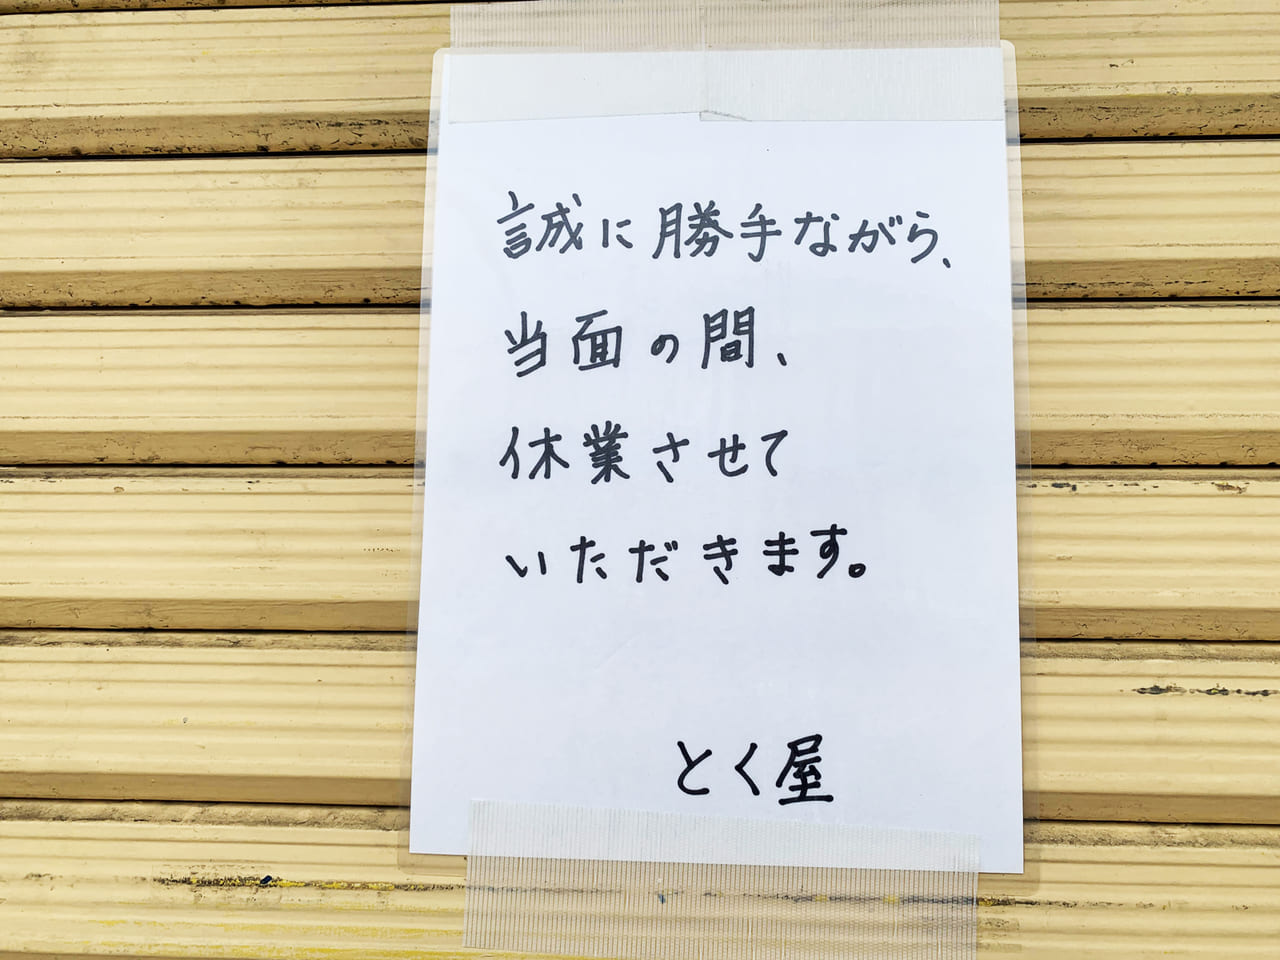 誠に勝手ながら、
当面の間、
休業させて
いただきます。
とく屋